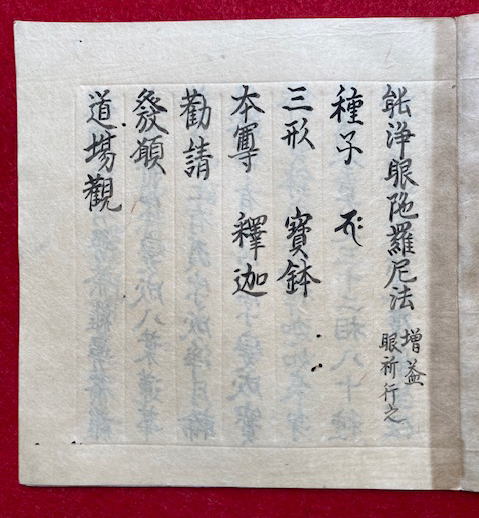 能浄眼陁羅尼法 増益 眼祈行之
種子
三形 寳鉢
本尊 釋迦
勸請
發願
道塲觀